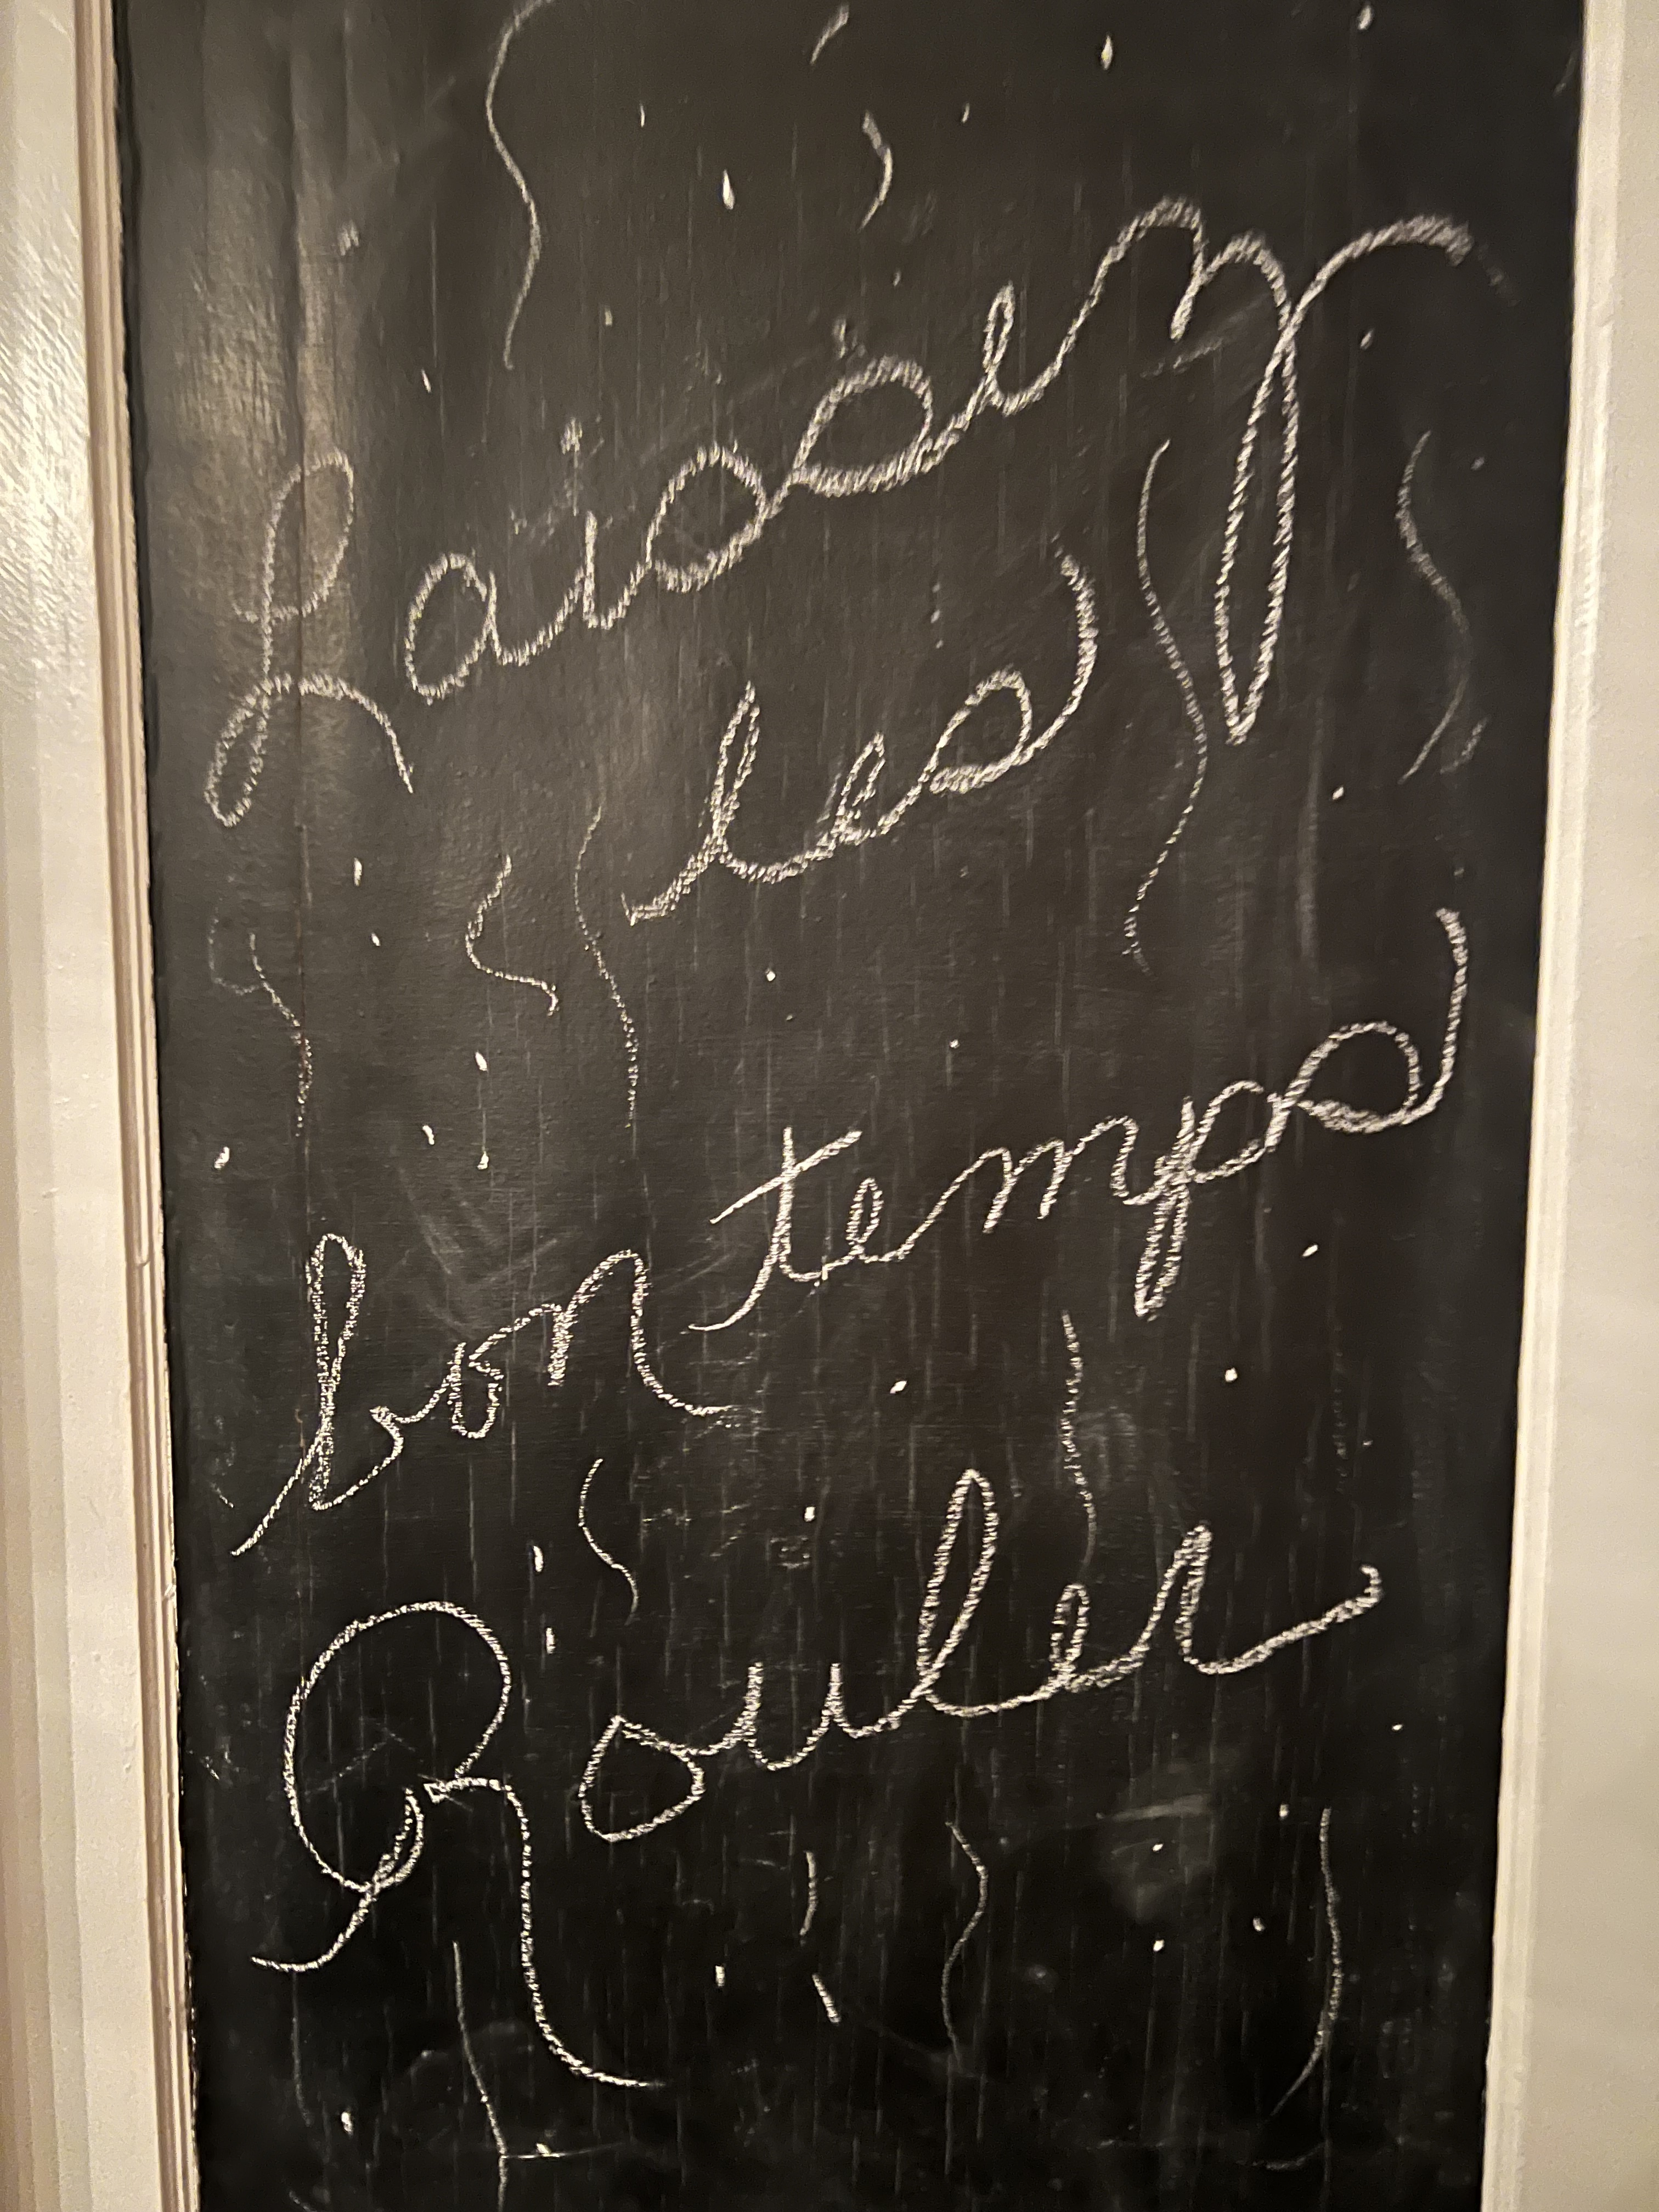 Laissez
les
bon temps
Rouler